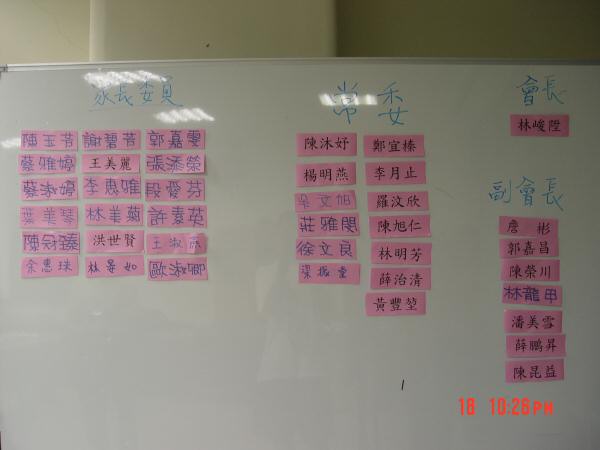 家長委員
陳玉苹 謝碧苔 郭嘉雯
蔡雅婷 王美麗 張添榮
蔡淑婷 李惠雅 段愛芬
葉美琴 林美菊 許素英
陳冠臻 洪世賢 王淑
余惠珠 林晏如 歐淑卿
常委
陳沐妤 鄭宜榛
楊明燕 李月止
吳文旭 羅汶欣
莊雅閔 陳旭仁
徐文良 林明芳
梁振堂 薛治清
黃豐堃
會長
林峻陞
副會長
詹彬
郭嘉昌
陳榮川
林龍甲
潘美雪
薛鵬昇
陳昆益
18 10:26PM